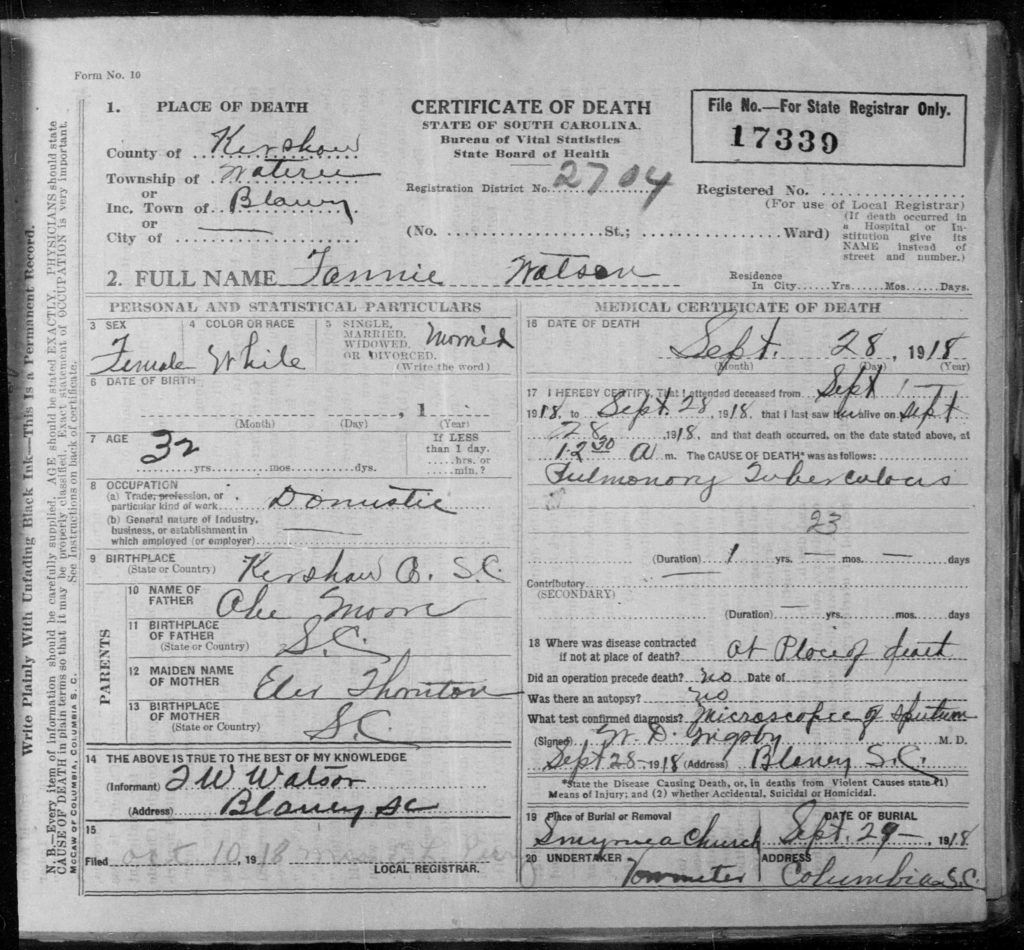 Form No. 10
1. PLACE OF DEATH
County of Kershaw
Township of Wateree
or
Inc. Town of Blaney
or
City of
CERTIFICATE OF DEATH
STATE OF SOUTH CAROLINA.
Bureau of Vital Statistics
State Board of Health
Registration District No. 2704
(No. St.; Ward)
File No.—For State Registrar Only.
17339
Registered No.
(For use of Local Registrar)
(If death occurred in
a Hospital or In-
stitution give its
NAME instead of
street and number.)
2. FULL NAME Fannie Watson
Residence
In City Yrs. Mos. Days.
PERSONAL AND STATISTICAL PARTICULARS
3 SEX
Female
4 COLOR OR RACE
White
5 SINGLE,
MARRIED,
WIDOWED,
OR DIVORCED.
(Write the word)
Married
6 DATE OF BIRTH
, 1
(Month) (Day) (Year)
7 AGE
32
yrs. mos. dys.
If LESS
than 1 day.
hrs. or
min.?
8 OCCUPATION
(a) Trade, profession, or
particular kind of work Domistic
(b) General nature of Industry,
business, or establishment in
which employed (or employer)
9 BIRTHPLACE
(State or Country) Kershaw Co. S.C
PARENTS
10 NAME OF
FATHER Abe Moore
11 BIRTHPLACE
OF FATHER
(State or Country) S.C.
12 MAIDEN NAME
OF MOTHER Thornton
13 BIRTHPLACE
OF MOTHER
(State or Country) S.C
14 THE ABOVE IS TRUE TO THE BEST OF MY KNOWLEDGE
(Informant) J W Watson
(Address) Blaney SC
15
Filed Oct 10, 1918
LOCAL REGISTRAR.
MEDICAL CERTIFICATE OF DEATH
16 DATE OF DEATH
Sept. 28, 1918
(Month) (Day) (Year)
17 I HEREBY CERTIFY, That I attended deceased from Sept 1—
1918, to Sept 28, 1918, that I last saw her alive on Sept
28 1918, and that death occurred, on the date stated above, at
12 30 A m. The CAUSE OF DEATH* was as follows:
Pulmonary Tuberculosis
23
(Duration) 1 yrs. — mos. — days
Contributory
(SECONDARY)
(Duration) — yrs. mos. days
18 Where was disease contracted
if not at place of death? at Place of death
Did an operation precede death? No Date of
Was there an autopsy? No
What test confirmed diagnosis? Microscopic of Sputum
(Signed) W. D. Grigsby M. D.
Sept 28-1918 (Address) Blaney S.C.
*State the Disease Causing Death, or, in deaths from Violent Causes state (1)
Means of Injury; and (2) whether Accidental, Suicidal or Homicidal.
19 Place of Burial or Removal
Smyrnea Church
DATE OF BURIAL
Sept. 29—, 1918
20 UNDERTAKER
Vanmeter
ADDRESS
Columbia S.C.
Write Plainly With Unfading Black Ink—This Is a Permanent Record.
N. B.—Every item of information should be carefully supplied. AGE should be stated EXACTLY. PHYSICIANS should state
CAUSE OF DEATH in plain terms so that it may be properly classified. Exact statement of OCCUPATION is very important.
See Instructions on back of certificate.
McCAW OF COLUMBIA, COLUMBIA S. C.